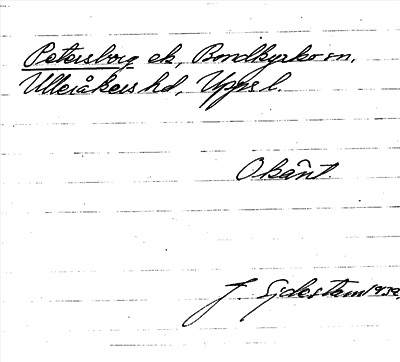 Petersborg ek, Bondkyrko sn,
Ulleråkers hd, Upps l.
Okänt.
J. Sjdestam 1932.